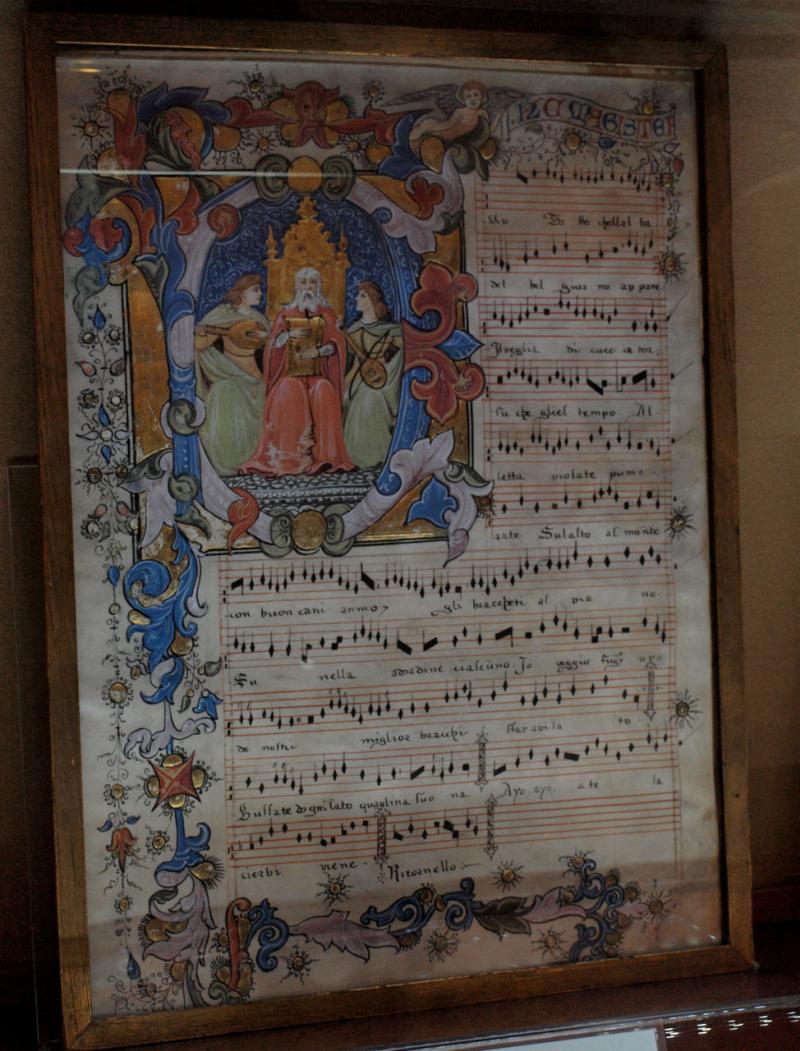 MAGISTER
To sto chellal ba
del bel gior no appare
Isveglia di cacc ia tor;
su che gliel tempo Al
letta violate pume
rate Sulalto al monte
con buon cani anmo gli braccheti al pia no
Su nella adradine ciascuno Jo veggio
de nostri miglior bracchi star avisa to
Bussate dogni lato quaglina suo na Ayo ayo a te la
cierbi viene Ritornello